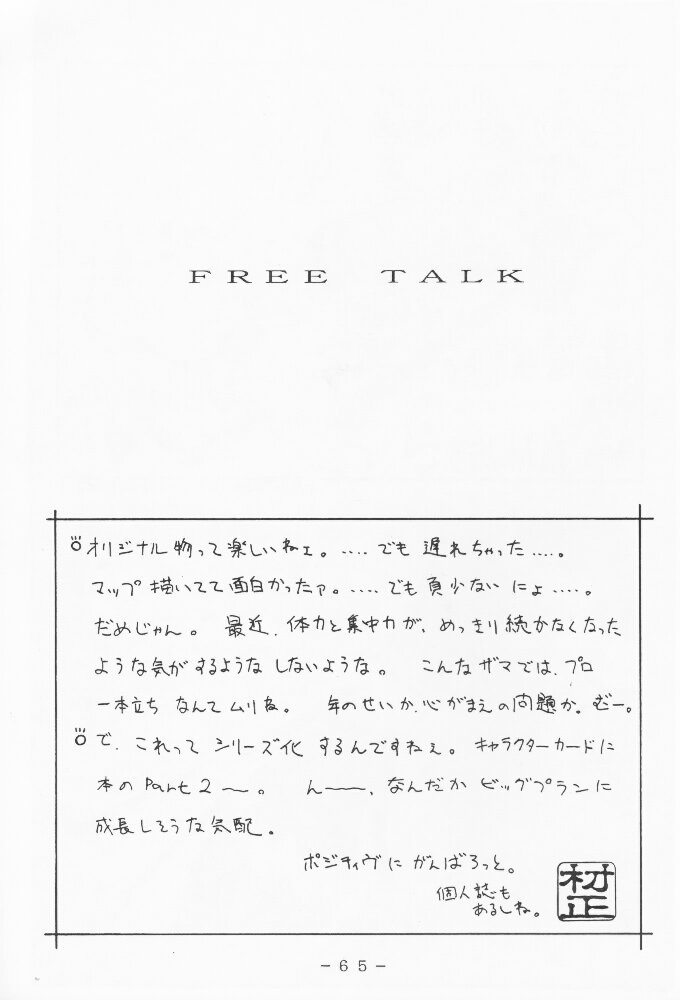 FREE TALK
オリジナル物って楽しいねェ。‥‥でも遅れちゃった‥‥。
マップ描いてて面白かったァ。‥‥でも頁少ないにょ‥‥。
だめじゃん。 最近、体力と集中力が、めっきり続かなくなった
ような気がするような しないような。 こんなザマでは、プロ
一本立ち なんてムリね。 年のせいか、心がまえの問題か。むー。
で、これって シリーズ化 するんですねぇ。キャラクターカードに
本の Part 2 〜。 ん〜〜、なんだか ビッグプランに
成長しそうな気配。
ポジティヴに がんばろっと。
個人誌も
あるしね。
村正
-65-